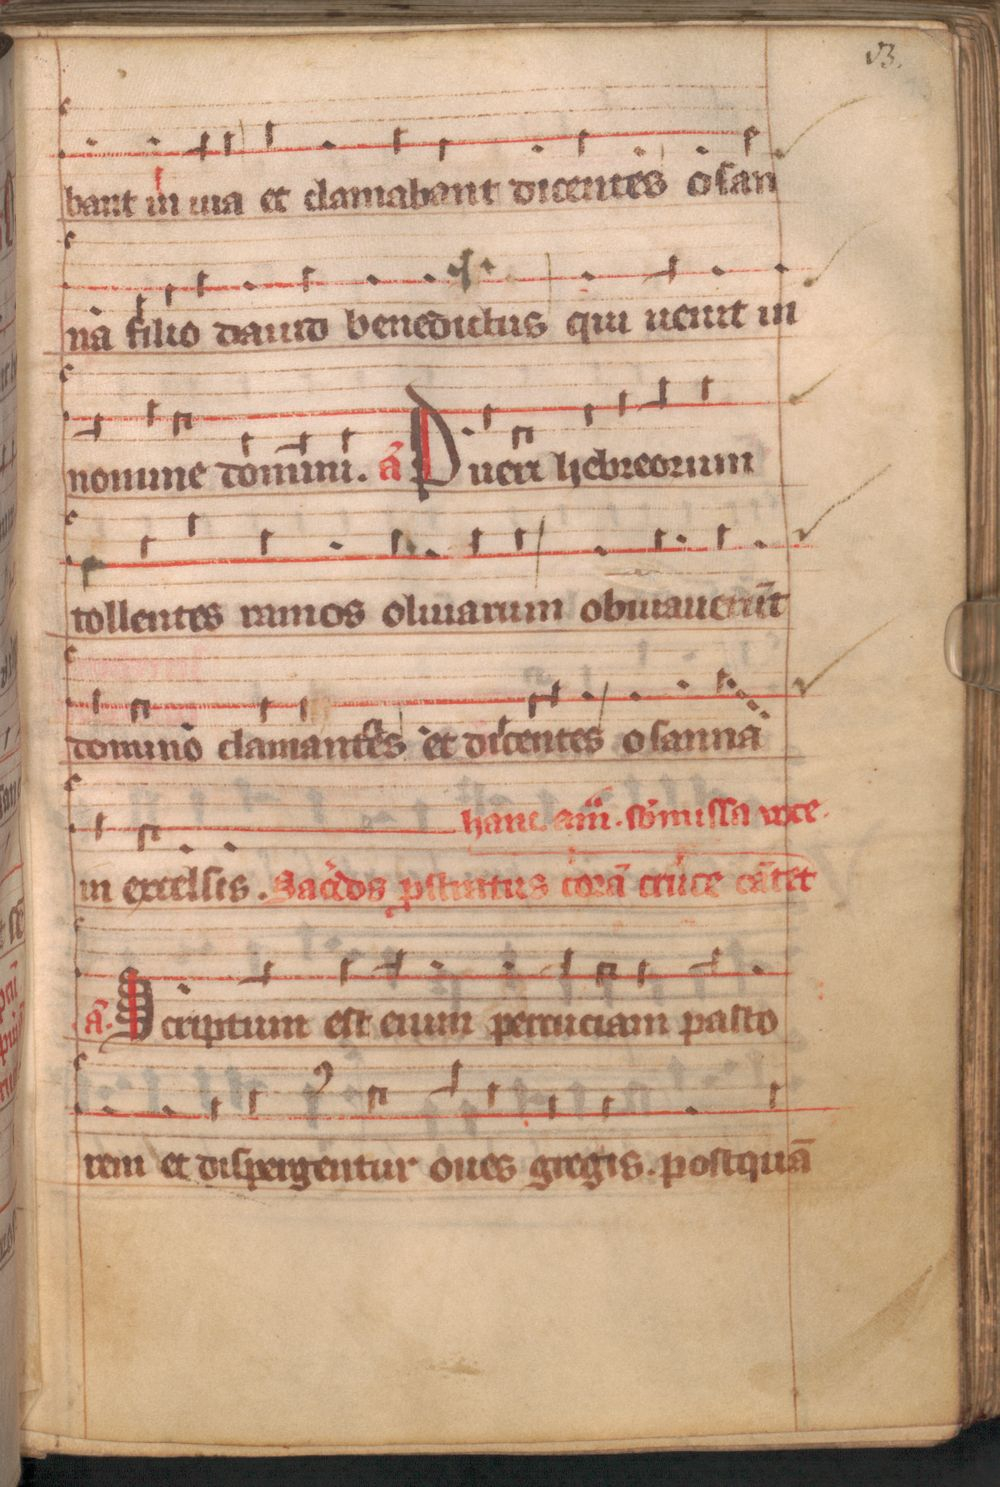 53.
bant in uia et clamabant dicentes osan
na filio dauid benedictus qui uenit in
nomine domini. añ Pueri hebreorum
tollentes ramos oliuarum obuiauerūt
domino clamantes et dicentes osanna
hanc añ. submissa uoce.
in excelsis. Sacerdos corā cruce cātet
añ. Scriptum est enim percuciam pasto
rem et dispergentur oues gregis. postquā